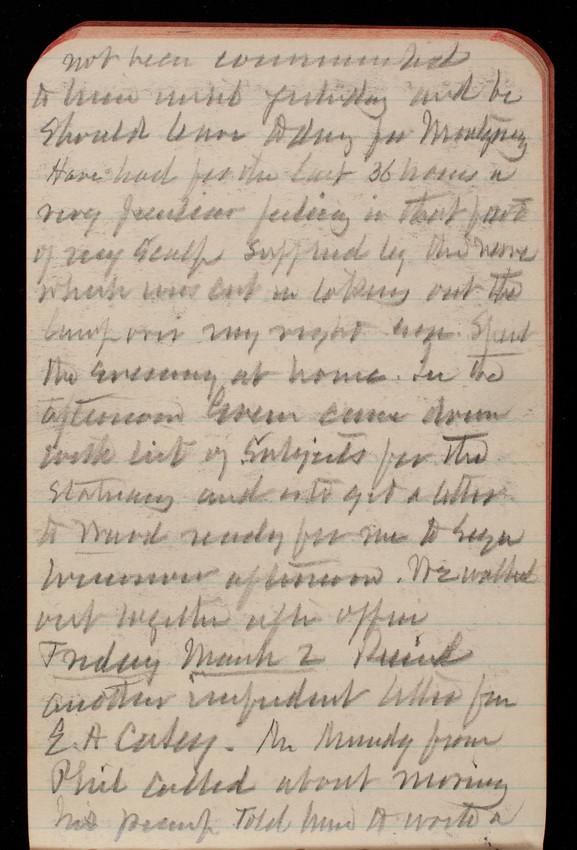 not been communicated
to him until yesterday and he
should leave today for Montgomery
Have had for the last 36 hours a
very peculiar feeling in that part
of my scalp supplied by the nerve
which was cut in taking out the
lump over my right eye. Spent
the evening at home. In the
afternoon Green came down
with list of subjects for the
Statuary and is to get a letter
to Ward ready for me to sign
tomorrow afternoon. We walked
out together after office
Friday March 2 Received
another impudent letter from
E. A Casey. Mr Mundy from
Phil called about moving
his pump told him to write a